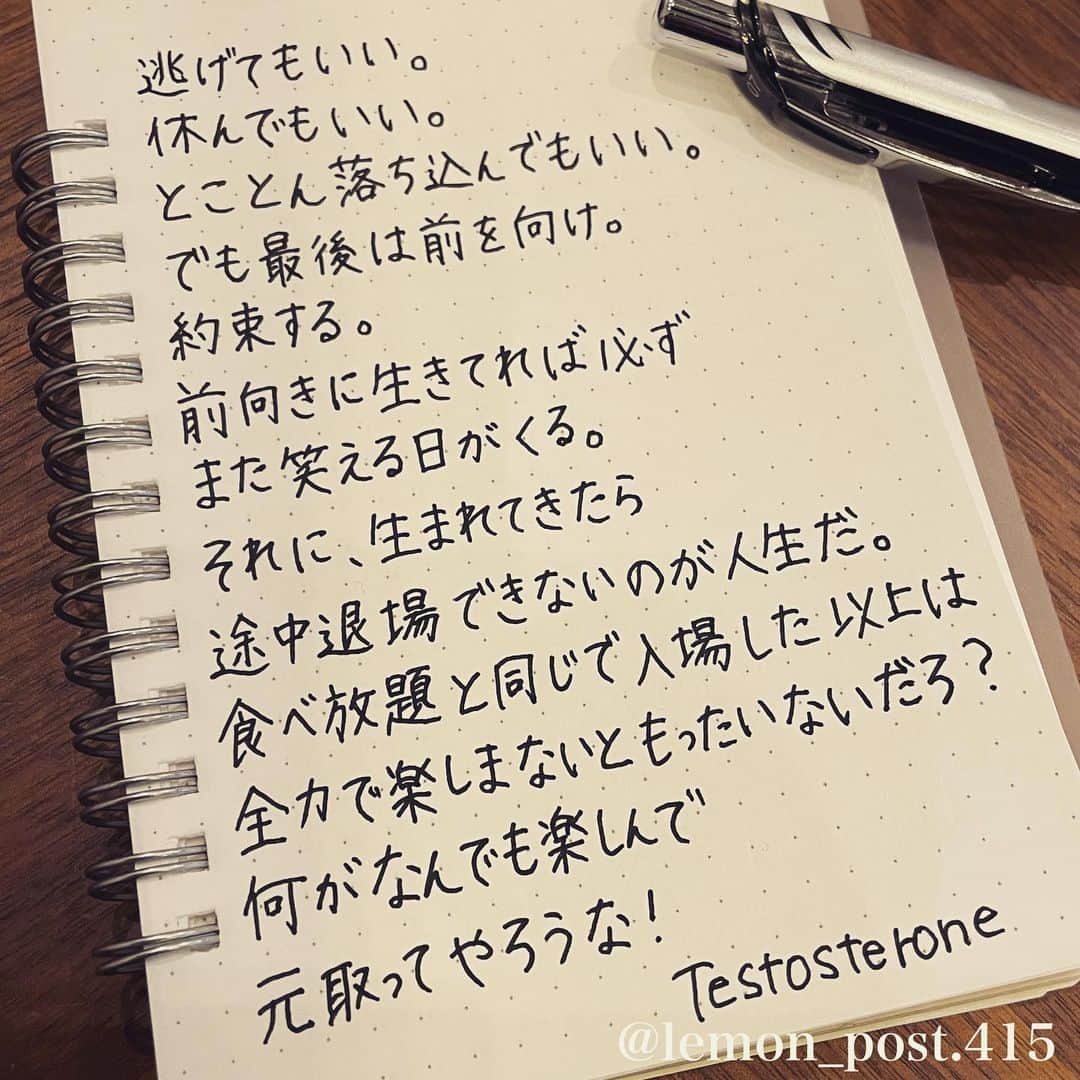 逃げてもいい。
休んでもいい。
とことん落ち込んでもいい。
でも最後は前を向け。
約束する。
前向きに生きてれば必ず
また笑える日がくる。
それに、生まれてきたら
途中退場できないのが人生だ。
食べ放題と同じで入場した以上は
全力で楽しまないともったいないだろ？
何がなんでも楽しんで
元取ってやろうな！
Testosterone
@lemon_post.415